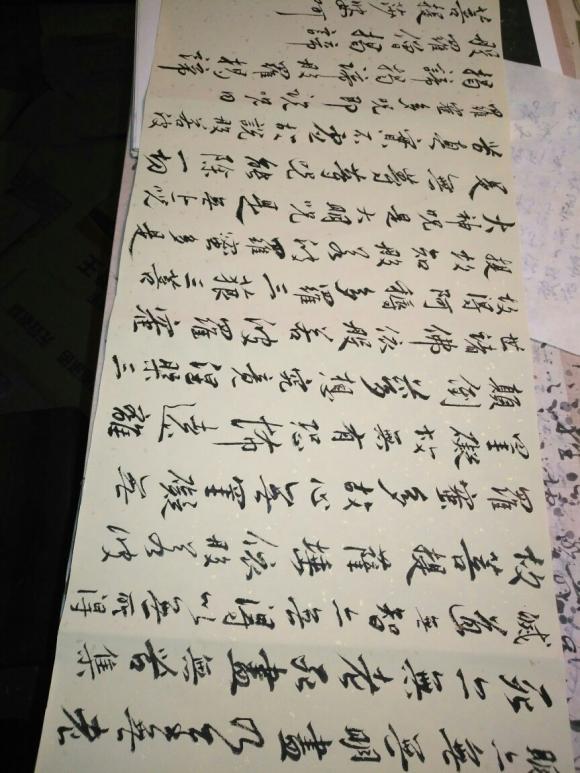 明亦無無明盡乃至無老
死亦無老死盡無苦集
滅道無智亦無得以無所得
故菩提薩埵依般若波
羅蜜多故心無罣礙無
罣礙故無有恐怖遠離
顛倒夢想究竟涅槃三
世諸佛依般若波羅蜜
故得阿耨多羅三藐三菩
提故知般若波羅蜜多是
大神咒是大明咒是無上咒
是無等等咒能除一切
苦真實不虛故說般若波
羅蜜多咒即說咒曰
揭諦揭諦般羅揭諦
般羅僧揭諦
菩提莎婆訶